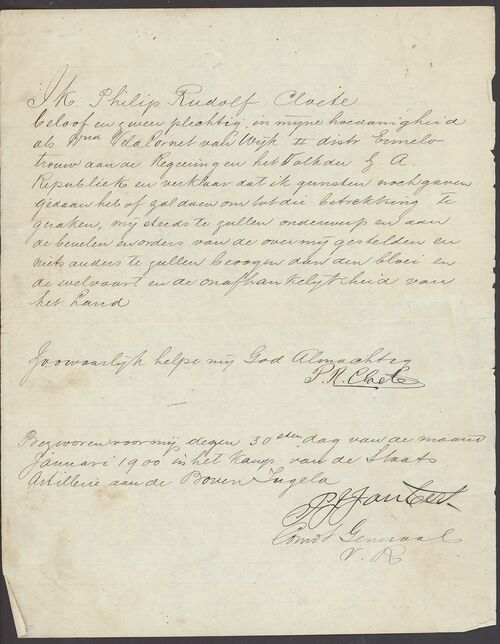 Ik. Philip Rudolf Cloete
beloof en zweer plechtig, in mijne hoedanigheid
als Veldcornet van Wijk II distr Ermelo
trouw aan de Regeering en het Volk der Z. A.
Republiek en verklaar dat ik gunsten noch gaven
gedaan heb of zal doen om tot die betrekking te
geraken, mij steeds te zullen onderwerpen aan
de bevelen en orders van de over mij gestelden en
niets anders te zullen beoogen dan den bloei en
de welvaart en de onafhankelijkheid van
het Land
Zoowaarlijk helpe mij God Almachtig
P. R. Cloete
Bezworen voor mij dezen 30sten dag van de maand
Januari 1900 in het Kamp van de Staats
Artillerie aan de Boven Tugela
P J Joubert
Comdt Generaal